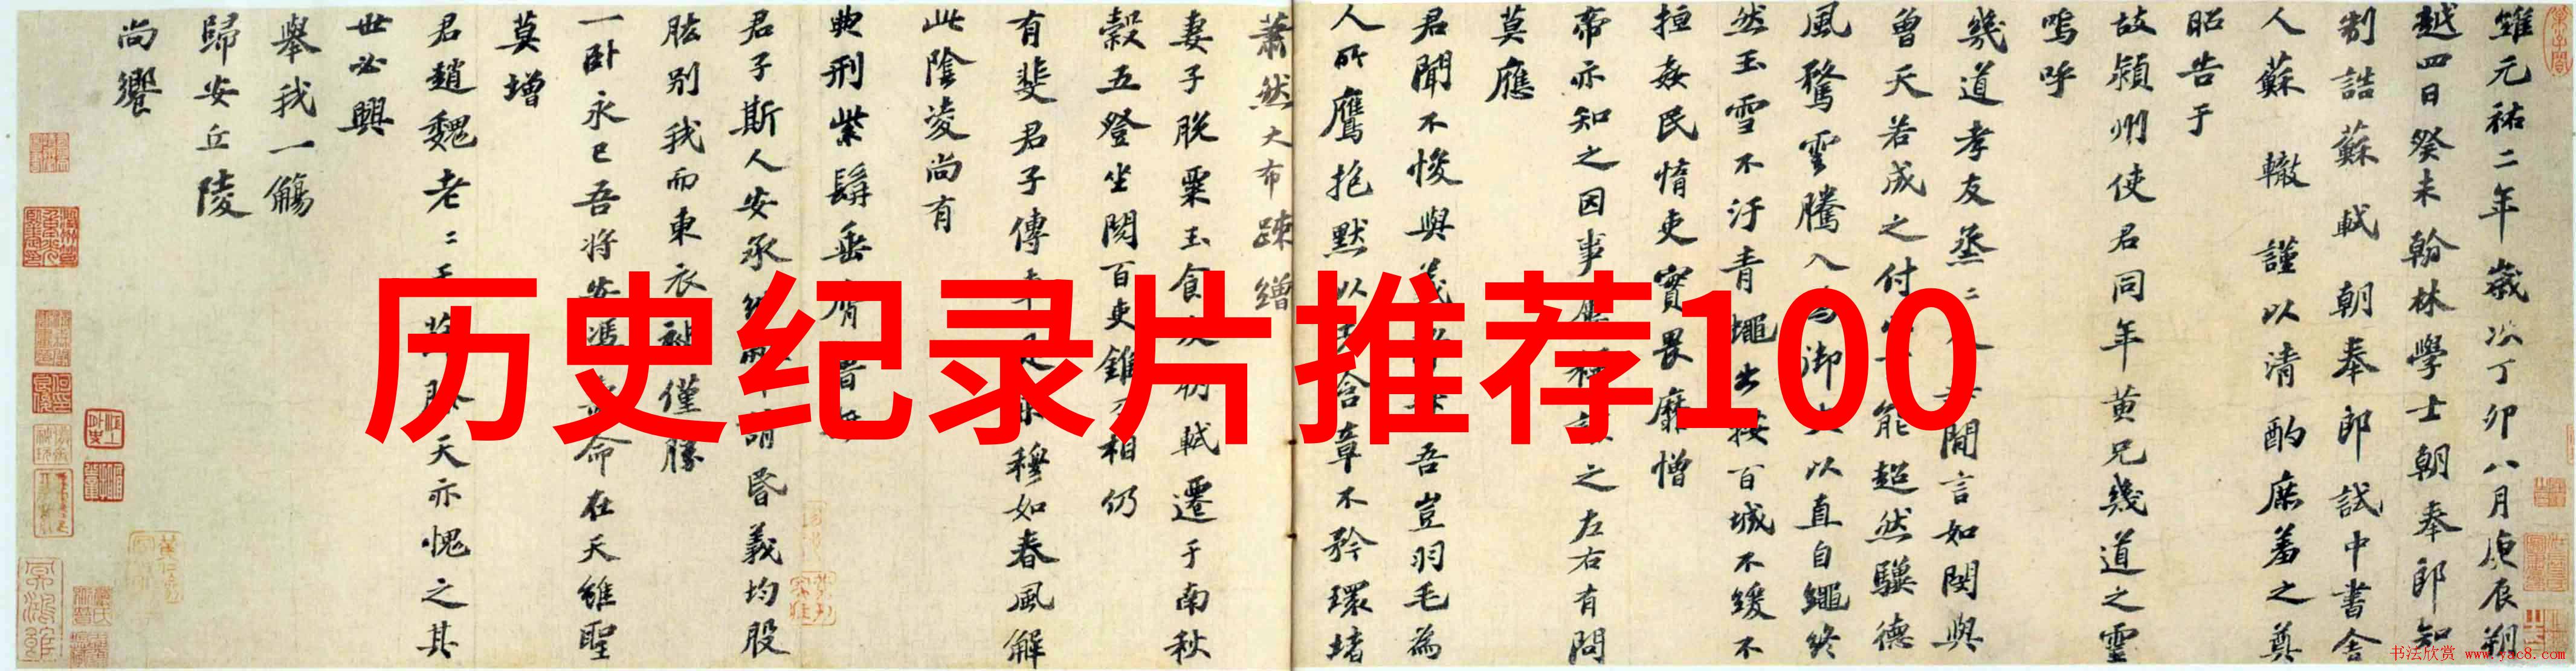 維元祐二年歲次丁卯八月庚辰朔
越四日癸未翰林學士朝奉郎知
制誥蘇軾朝奉郎試中書舍
人蘇轍謹以清酌庶羞之奠
昭告于
故潁州使君同年黄兄幾道之靈
嗚呼
幾道孝友烝二人閒言如閔與
曾天若成之付能超然驥德
風騖雲騰入為御以直自繩終
然玉雪不汙青蠅出按百城不緩不
擾姦民惰吏實畏靡憎
帝亦知之因事之左右有問
莫應
君聞不悛與義吾豈羽毛為
人所鷹抱默以含章不矜環堵
蕭然大布疎繒
妻子脫粟玉食軾遷于南秋
穀五登坐閱百吏錐相仍
有斐君子傳車是穆如春風解
此陰淩尚有
典刑紫髯垂膺昔
君子斯人安承昏義均股
肱别我而東衣僅勝
一卧永已吾将安馮命在天維聖
莫增
君趙魏老二天亦愧之其
世必興
舉我一觴
歸安丘陵
尚饗
历史纪录片推荐100
书法欣赏 www.yac8.com